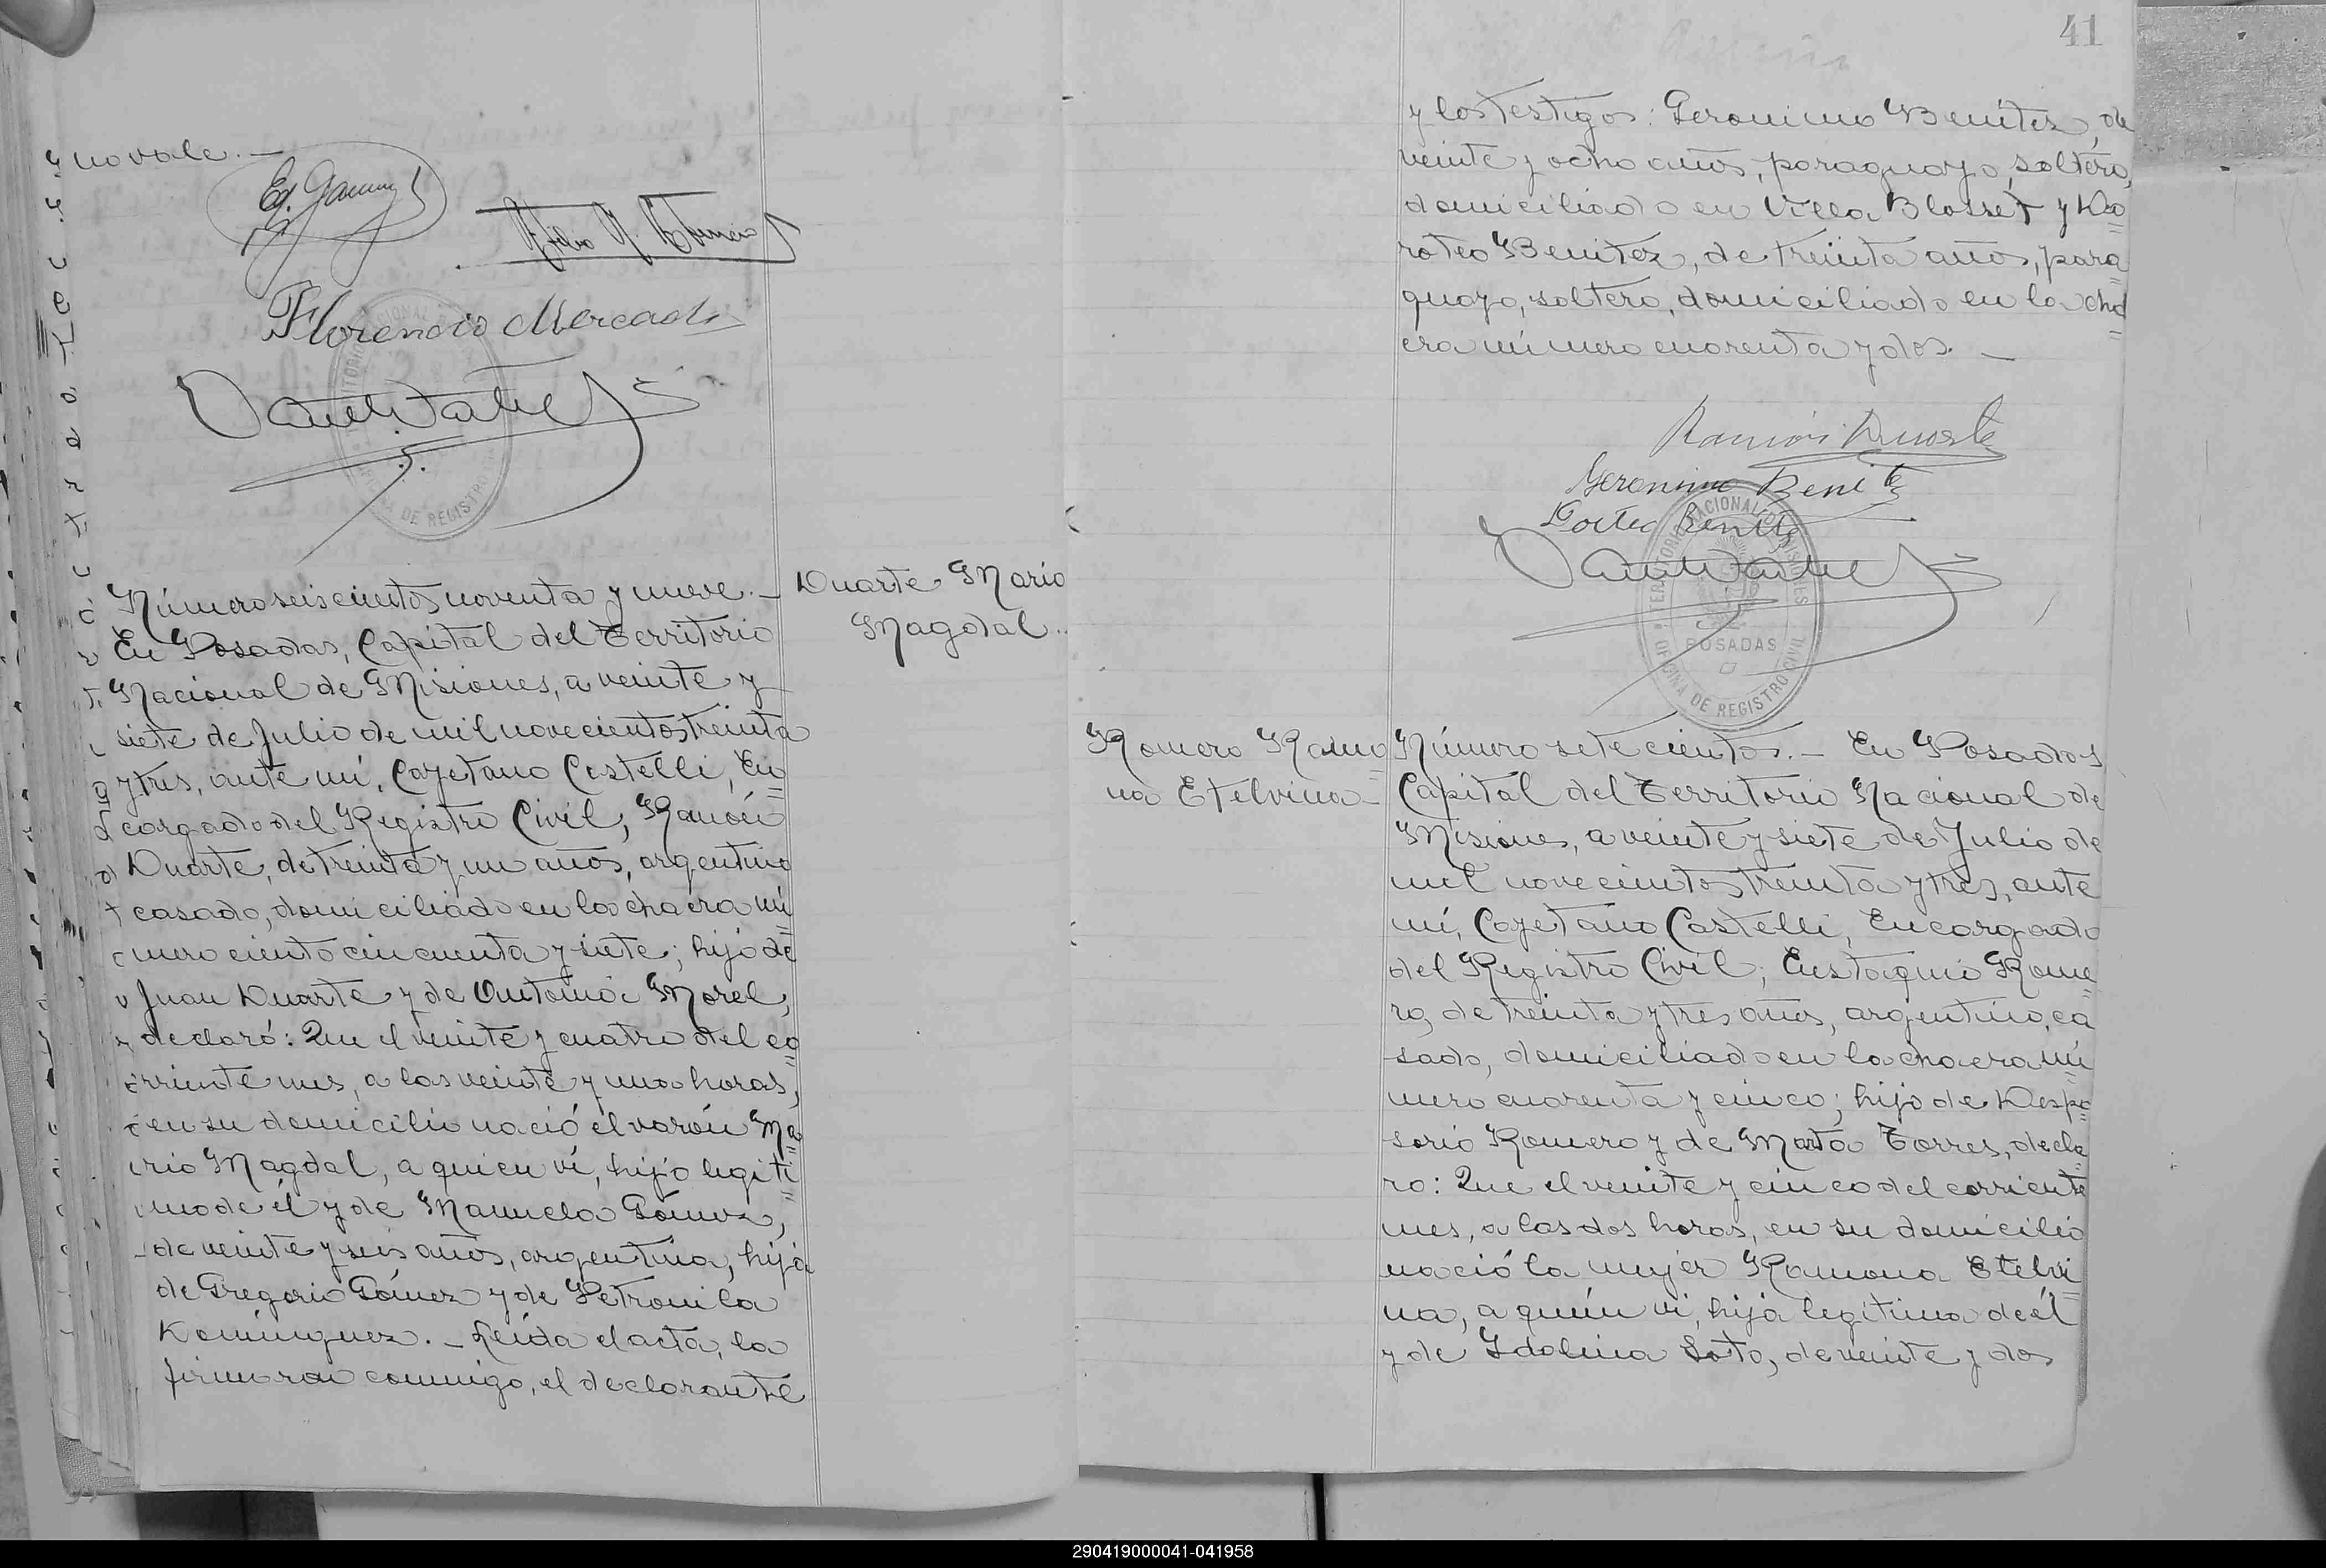 no vale.—
Florencio Mercado
Número seiscientos noventa y nueve.—
Duarte Mario
Magdal.
En Posadas, Capital del Territorio
Nacional de Misiones, a veinte y
siete de Julio de mil novecientos treinta
y tres, ante mí, Cayetano Castelli, En=
cargado del Registro Civil, Ramón
Duarte, de treinta y un años, argentino
casado, domiciliado en la chacra nú=
mero ciento cincuenta y siete; hijo de
Juan Duarte y de Antonia Morel,
declaró: Que el veinte y cuatro del co=
rriente mes, a las veinte y una horas,
en su domicilio nació el varón Ma=
rio Magdal, a quien ví, hijo legiti=
mo de él y de Manuela Gómez,
de veinte y seis años, argentina, hija
de Gregorio Gómez y de Petronila
Domínguez.— Leída el acta, la
firmaron conmigo, el declarante
41
y los testigos: Geronimo Benítez, de
veinte y ocho años, paraguayo, soltero,
domiciliado en Villa Blosset y Do=
roteo Benitez, de treinta años, para=
guayo, soltero, domiciliado en la cha=
cra número cuarenta y dos.—
Ramón Duarte
Geronimo Benitez
TERRITORIO NACIONAL DE MISIONES
POSADAS
OFICINA DE REGISTRO CIVIL
Romero Ramo=
na Etelvina—
Número setecientos.— En Posadas
Capital del Territorio Nacional de
Misiones, a veinte y siete de Julio de
mil novecientos treinta y tres, ante
mí, Cayetano Castelli, Encargado
del Registro Civil, Eustaquio Rome=
ro, de treinta y tres años, argentino, ca=
sado, domiciliado en la chacra nú=
mero cuarenta y cinco; hijo de Despo=
sorio Romero y de Marta Torres, decla=
ro: Que el veinte y cinco del corriente
mes, a las dos horas, en su domicilio
nació la mujer Ramona Etelvi=
na, a quién vi, hija legítima de él
y de Idolina Soto, de veinte y dos
290419000041-041958